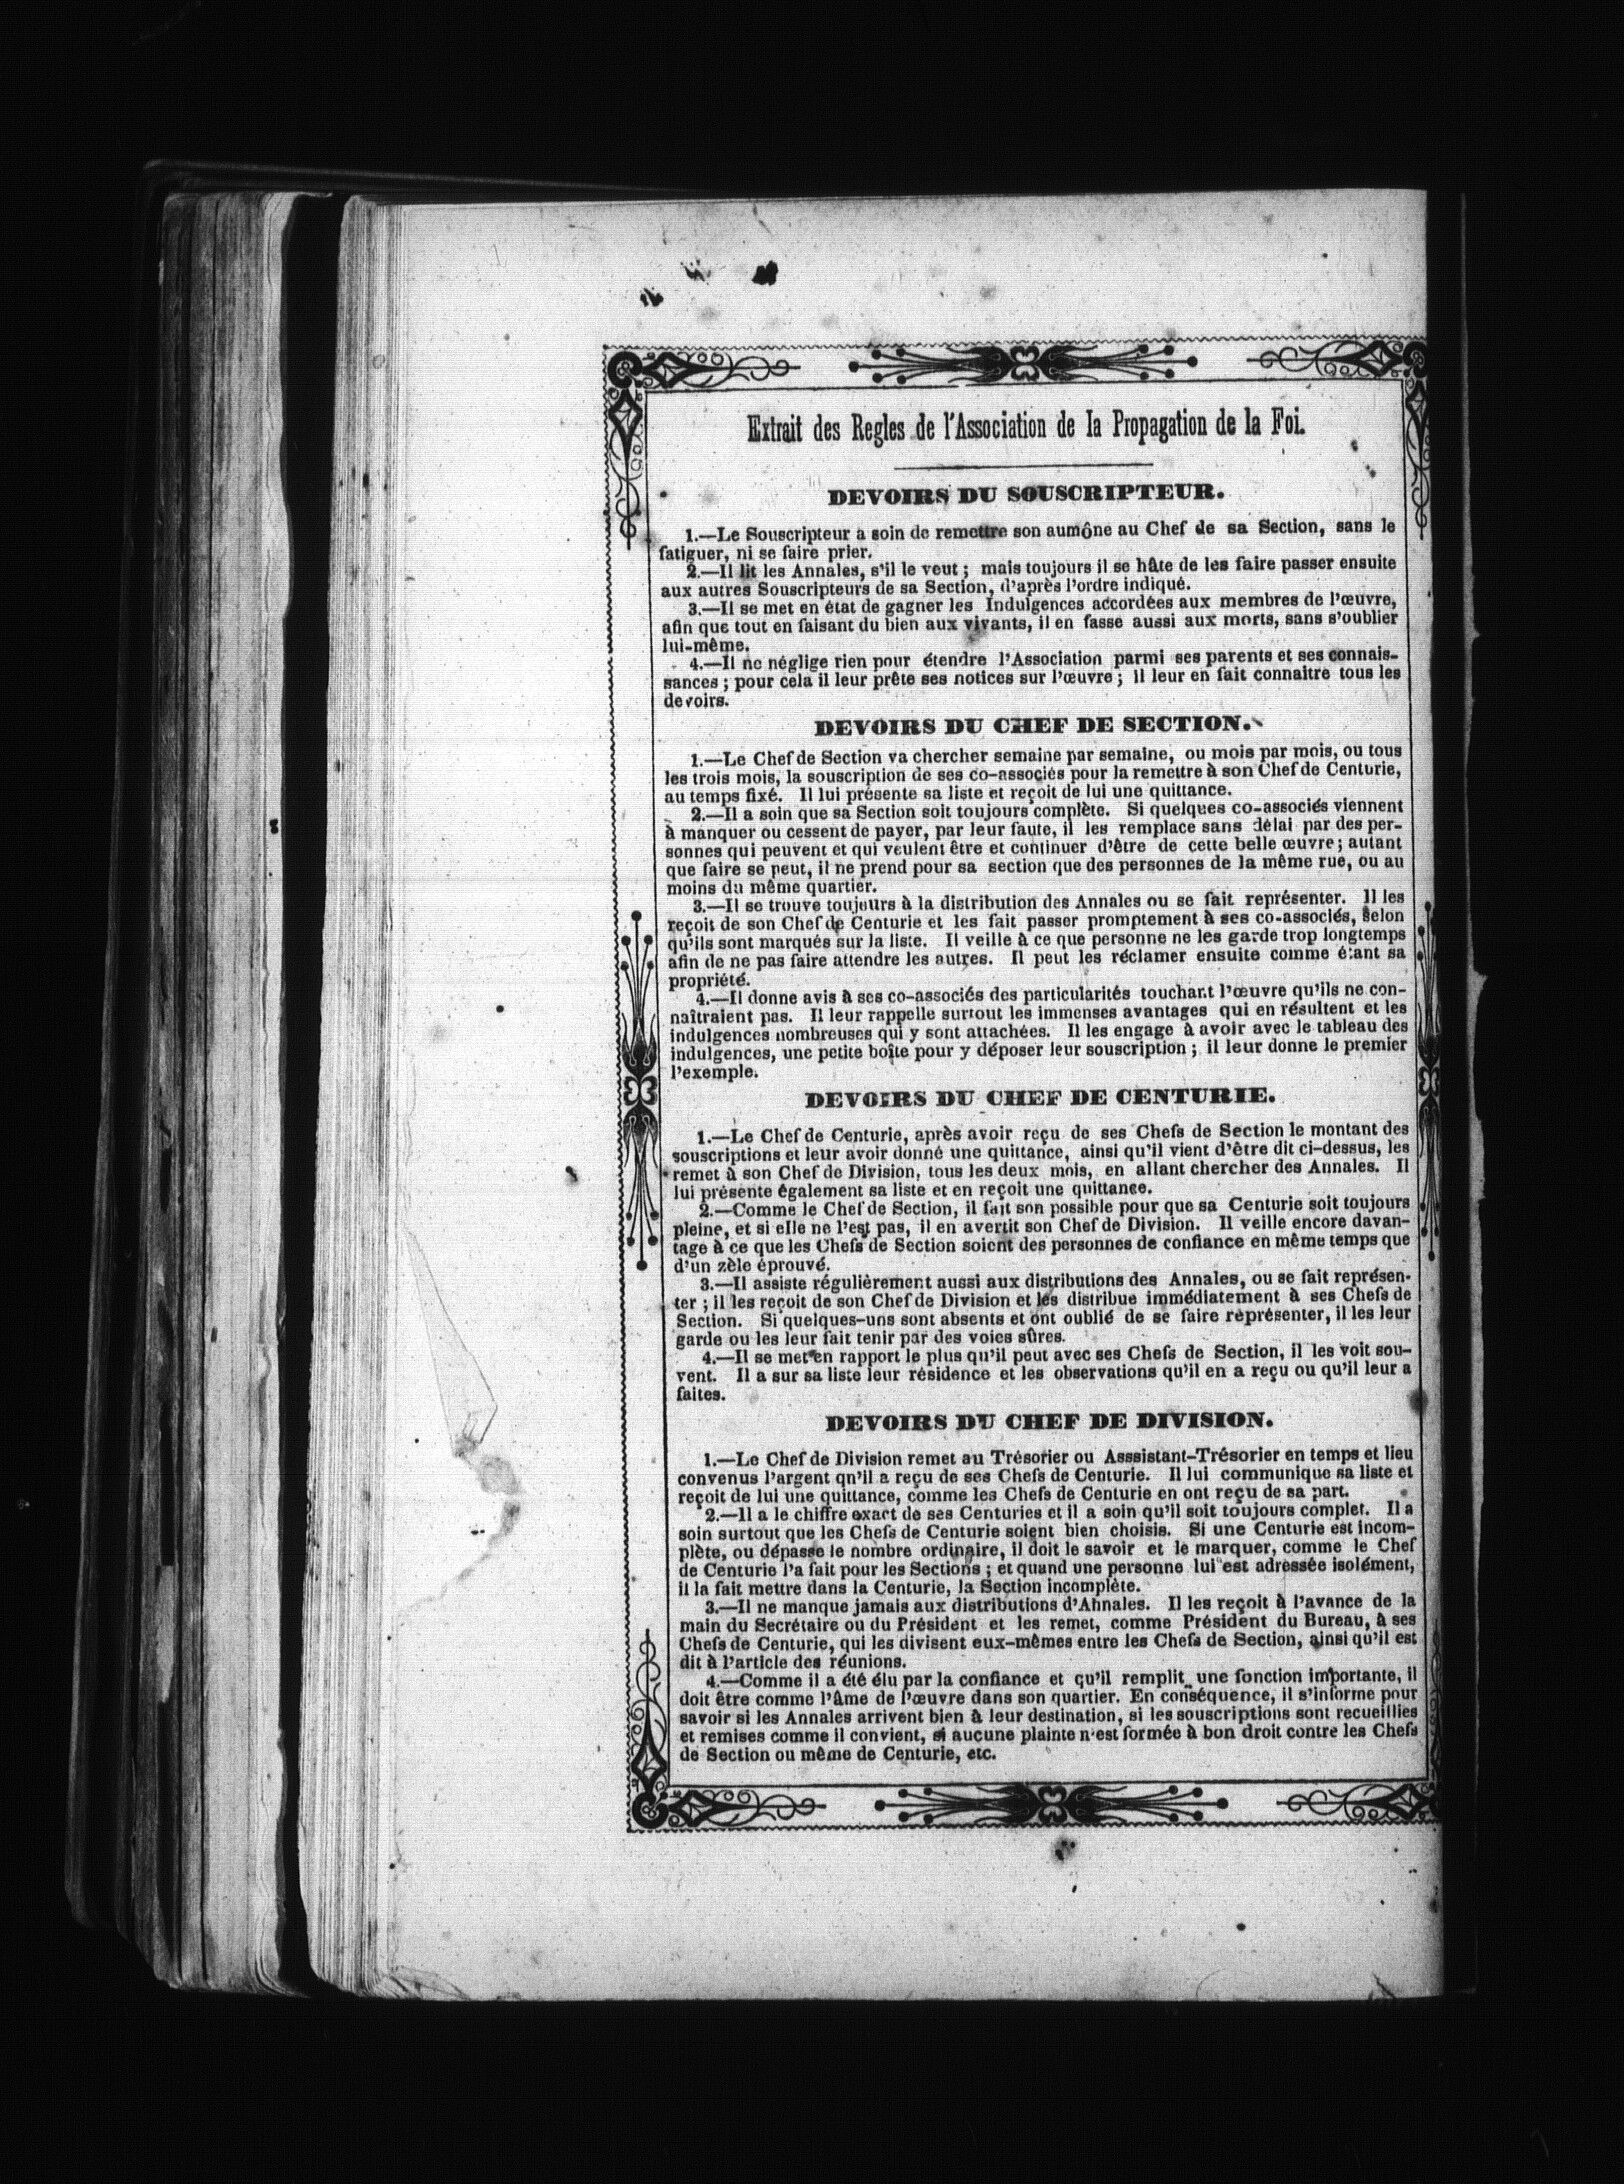 Extrait des Regles de l'Association de la Propagation de la Foi.
DEVOIRS DU SOUSCRIPTEUR.
1.—Le Souscripteur a soin de remettre son aumône au Chef de sa Section, sans le
fatiguer, ni se faire prier.
2.—Il lit les Annales, s'il le veut ; mais toujours il se hâte de les faire passer ensuite
aux autres Souscripteurs de sa Section, d'après l'ordre indiqué.
3.—Il se met en état de gagner les Indulgences accordées aux membres de l'œuvre,
afin que tout en faisant du bien aux vivants, il en fasse aussi aux morts, sans s'oublier
lui-même.
4.—Il ne néglige rien pour étendre l'Association parmi ses parents et ses connais-
sances ; pour cela il leur prête ses notices sur l'œuvre ; il leur en fait connaître tous les
devoirs.
DEVOIRS DU CHEF DE SECTION.
1.—Le Chef de Section va chercher semaine par semaine, ou mois par mois, ou tous
les trois mois, la souscription de ses co-associés pour la remettre à son Chef de Centurie,
au temps fixé. Il lui présente sa liste et reçoit de lui une quittance.
2.—Il a soin que sa Section soit toujours complète. Si quelques co-associés viennent
à manquer ou cessent de payer, par leur faute, il les remplace sans délai par des per-
sonnes qui peuvent et qui veulent être et continuer d'être de cette belle œuvre ; autant
que faire se peut, il ne prend pour sa section que des personnes de la même rue, ou au
moins du même quartier.
3.—Il se trouve toujours à la distribution des Annales ou se fait représenter. Il les
reçoit de son Chef de Centurie et les fait passer promptement à ses co-associés, selon
qu'ils sont marqués sur la liste. Il veille à ce que personne ne les garde trop longtemps
afin de ne pas faire attendre les autres. Il peut les réclamer ensuite comme étant sa
propriété.
4.—Il donne avis à ses co-associés des particularités touchant l'œuvre qu'ils ne con-
naîtraient pas. Il leur rappelle surtout les immenses avantages qui en résultent et les
indulgences nombreuses qui y sont attachées. Il les engage à avoir avec le tableau des
indulgences, une petite boîte pour y déposer leur souscription ; il leur donne le premier
l'exemple.
DEVOIRS DU CHEF DE CENTURIE.
1.—Le Chef de Centurie, après avoir reçu de ses Chefs de Section le montant des
souscriptions et leur avoir donné une quittance, ainsi qu'il vient d'être dit ci-dessus, les
remet à son Chef de Division, tous les deux mois, en allant chercher des Annales. Il
lui présente également sa liste et en reçoit une quittance.
2.—Comme le Chef de Section, il fait son possible pour que sa Centurie soit toujours
pleine, et si elle ne l'est pas, il en avertit son Chef de Division. Il veille encore davan-
tage à ce que les Chefs de Section soient des personnes de confiance en même temps que
d'un zèle éprouvé.
3.—Il assiste régulièrement aussi aux distributions des Annales, ou se fait représen-
ter ; il les reçoit de son Chef de Division et les distribue immédiatement à ses Chefs de
Section. Si quelques-uns sont absents et ont oublié de se faire représenter, il les leur
garde ou les leur fait tenir par des voies sûres.
4.—Il se met en rapport le plus qu'il peut avec ses Chefs de Section, il les voit sou-
vent. Il a sur sa liste leur résidence et les observations qu'il en a reçu ou qu'il leur a
faites.
DEVOIRS DU CHEF DE DIVISION.
1.—Le Chef de Division remet au Trésorier ou Asssistant-Trésorier en temps et lieu
convenus l'argent qn'il a reçu de ses Chefs de Centurie. Il lui communique sa liste et
reçoit de lui une quittance, comme les Chefs de Centurie en ont reçu de sa part.
2.—Il a le chiffre exact de ses Centuries et il a soin qu'il soit toujours complet. Il a
soin surtout que les Chefs de Centurie soient bien choisis. Si une Centurie est incom-
plète, ou dépasse le nombre ordinaire, il doit le savoir et le marquer, comme le Chef
de Centurie l'a fait pour les Sections ; et quand une personne lui est adressée isolément,
il la fait mettre dans la Centurie, la Section incomplète.
3.—Il ne manque jamais aux distributions d'Annales. Il les reçoit à l'avance de la
main du Secrétaire ou du Président et les remet, comme Président du Bureau, à ses
Chefs de Centurie, qui les divisent eux-mêmes entre les Chefs de Section, ainsi qu'il est
dit à l'article des réunions.
4.—Comme il a été élu par la confiance et qu'il remplit une fonction importante, il
doit être comme l'âme de l'œuvre dans son quartier. En conséquence, il s'informe pour
savoir si les Annales arrivent bien à leur destination, si les souscriptions sont recueillies
et remises comme il convient, si aucune plainte n'est formée à bon droit contre les Chefs
de Section ou même de Centurie, etc.